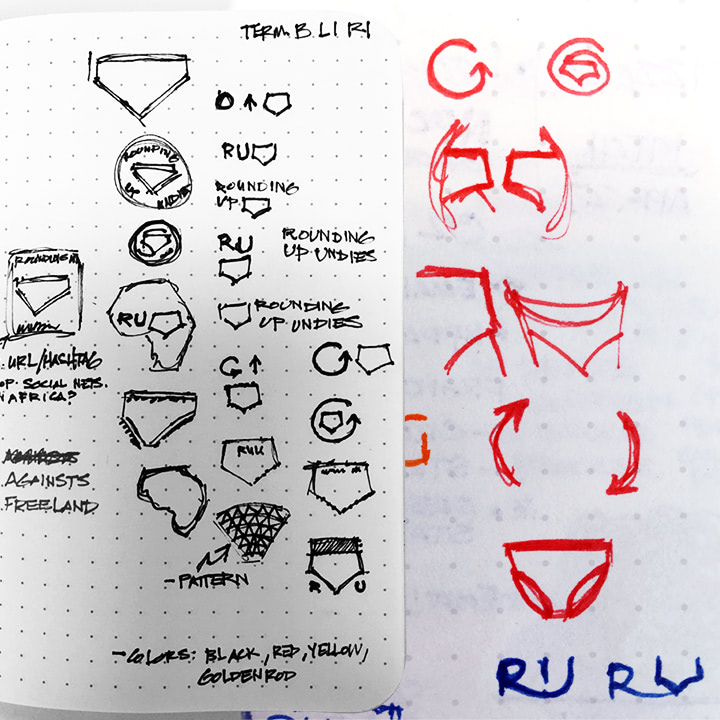 TERM. B. L1 R1
ROUNDING
UP UNDIES
RU
ROUNDING
UP
RU
ROUNDING
UP UNDIES
ROUNDING
UP UNDIES
RU
URL/HASHTAG
SOCIAL NETS.
AFRICA?
AGAINSTS
FREELAND
RUU
R U
-PATTERN
-COLORS: BLACK, RED, YELLOW,
GOLDENROD
RU RU